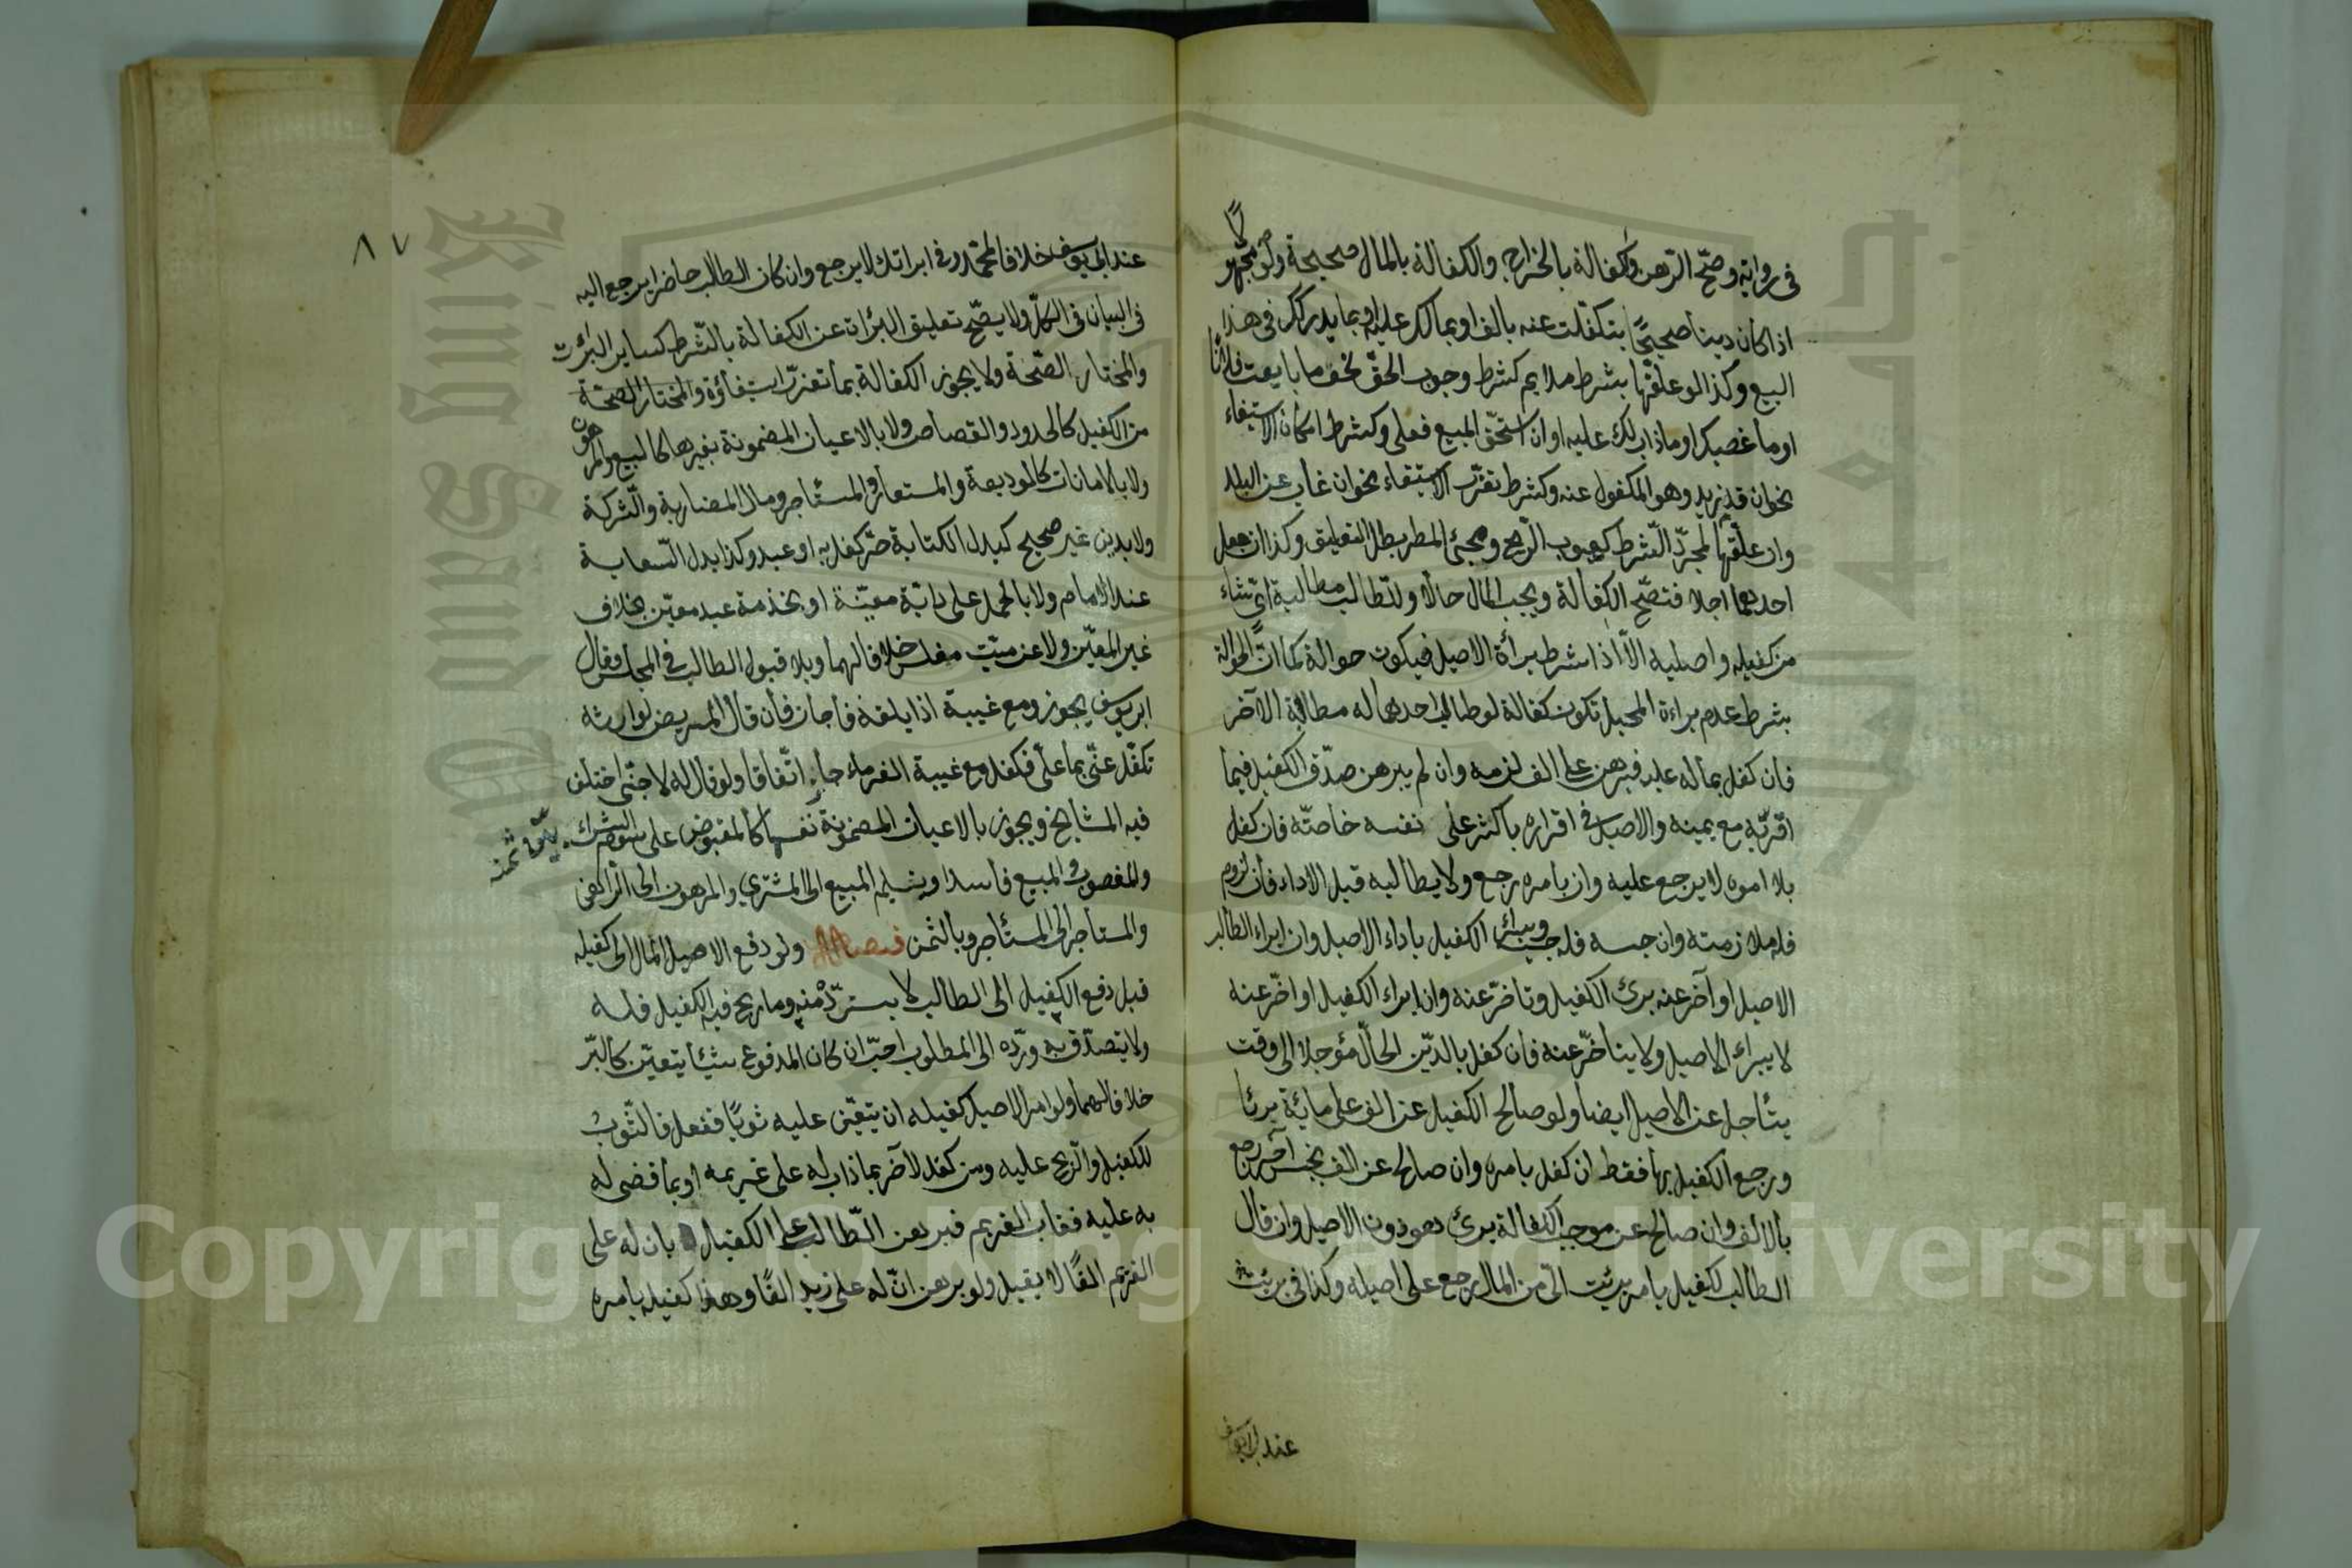 فى رواية وصحّ الرّهن والكفالة بالخراج والكفالة بالمال صحيحة ولو مجهو
لًا
اذا كان دينا صحيحًا بتكفلت عنه بالف او بما لك عليه او بما يدركك فى هذا
البيع وكذا لو علّقها بشرط ملايم كشرط وجوب الحقّ نحو ما بايعت فلانًا
او ما غصبك او ما ذاب لك عليه او ان استحقّ المبيع فعلى وكشرط امكان الاستيفاء
نحو ان قدم زيد وهو المكفول عنه وكشرط تعذّر الاستيفاء نحو ان غاب عن البلد
وان علّقها لمجرّد الشّرط كهبوب الرّيح ومجئ المطر بطل التعليق وكذا ان جعل
احدهما اجلا فتصّح الكفالة ويجب المال حالّا وللطّالب مطالبة اىّ شاء
من كفيله واصليه الاّ اذا شرط برأة الاصيل فيكون حوالة كما انّ الحوالة
بشرط عدم براءة المحيل تكون كفالة لو طالب احدهما له مطالبة الآخر
فان كفل بما له عليه فبرهن على الف لزمه وان لم يبرهن صدّق الكفيل فيما
اقرّبه مع يمينه والاصيل فى اقراره باكثر على نفسه خاصّة فان كفل
بلا امره لا يرجع عليه وان بامره رجع ولا يطالبه قبل الاداء فان لزوم
فله ملازمته وان حبسه فله حبسه ويبرئ الكفيل باداء الاصيل وان ابراء الطالب
الاصيل او آخر عنه برئ الكفيل وتاخرّ عنه وان ابراء الكفيل او اخّر عنه
لا يبراء الاصيل ولا يتأخرّ عنه فان كفل بالدّين الحالّ مؤجلا الى وقت
يتأجل عن الاصيل ايضا ولو صالح الكفيل عن الف على مائة برئا
ورجع الكفيل بها فقط ان كفل بامره وان صالح عن الف بجنس آخر رجع
بالالف وان صالح عن موجب الكفالة برئ هو دون الاصيل وان قال
الطالب لكفيل بامر برئت الىّ من المال رجع على اصيله وكذا فى برئت
عند ابى يوسف
٨٧
عند ابى يوسف خلافا لمحمّد وفى ابراتك لا يرجع وان كان الطالب حاضرا يرجع اليه
فى البيان فى الكلّ ولا يصّح تعليق البرأت عن الكفالة بالشّرط كساير البرأت
والمختار الصّحة ولا يجوز الكفالة بما تعذّر استيفاؤه والمختار الصّحة
من الكفيل كالحدود والقصاص ولا بالاعيان المضمونة بغيرها كالبيع والمرهون
ولا بالامانات كالوديعة والمستعار والمستأجر ومال المضاربة والشّركة
ولا بدين غير صحيح كبدل الكتابة حرّ كفل به او عبد وكذا بدل السّعاية
عند الامام ولا بالحمل على دابّة معيّنة او بخذمة عبد معيّن بخلاف
غير المعيّن ولا عن ميّت مفلس خلافا لهما وبلا قبول الطالب فى المجلس وقال
ابو يوسف يجوز ومع غيبة اذا بلغه فاجاز فان قال المريض لوارثه
تكفّل عنّى بما علىّ فكفل مع غيبة الغرماء جاز اتّفاقا ولو قال له لاجنبّى اختلف
فيه المشايخ ويجوز بالاعيان المضمونة نفسها كالمقبوض على سوم الشراء
ان سمى ثمنه
والمغصوب والمبيع فاسدا وبتسليم المبيع الى المشترى والمرهون الى الراهن
والمستأجر الى المستأجر وبالثمن فصل ولو دفع الاصيل المال الى كفيله
قبل دفع الكفيل الى الطالب لا يستردّ منه وما ربح فيه الكفيل فله
ولا يتصدّق به وردّه الى المطلوب احبّ ان كان المدفوع شيئا يتعيّن كالبّر
خلافا لهما ولو امر الاصيل كفيله ان يتعيّن عليه ثوبًا ففعل فالثّوب
للكفيل والرّبح عليه ومن كفل لآخر بما ذاب له على غريمه او بما قضى له
به عليه فغاب الغريم فبرهن الطّالب على الكفيل بان له على
الغريم الفًا لا يقبل ولو برهن انّ له على زيد الفًا وهذا كفيله بأمره